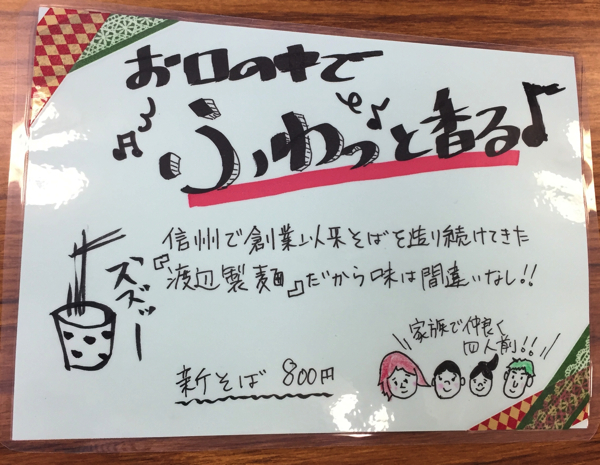 お口の中で
ふわっと香る♪
信州で創業以来そばを造り続けてきた
『渡辺製麺』だから味は間違いなし!!
ズズッー
家族で仲良く
四人前!!
新そば 800円